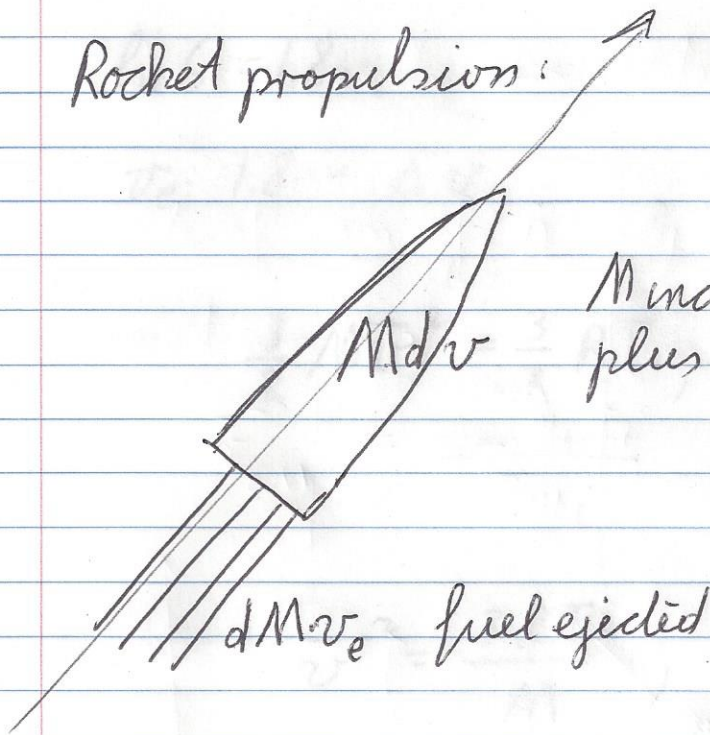 Rocket propulsion:
M inc
Mdv
plus
dM·vₑ fuel ejected